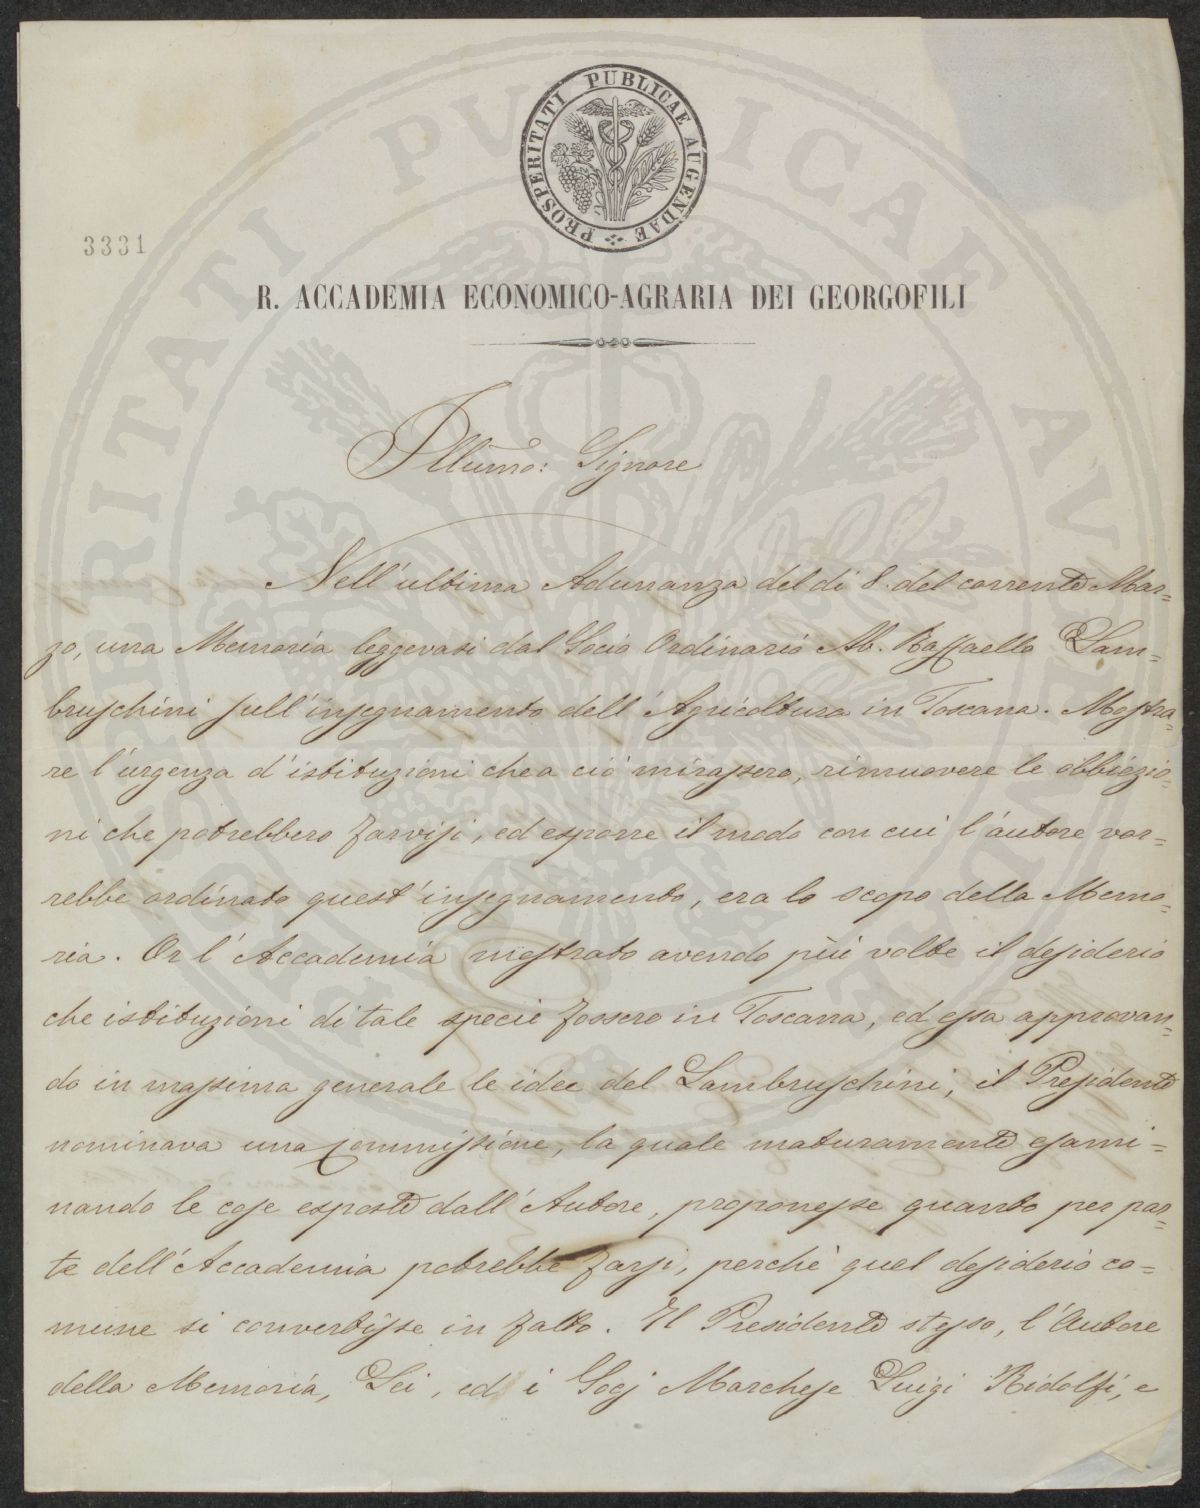 PROSPERITATI PUBLICAE AUGENDAE
3331
R. ACCADEMIA ECONOMICO-AGRARIA DEI GEORGOFILI
Illumo: Signore
Nell'ultima Adunanza del dì 8. del corrente Mar=
zo, una Memoria leggevasi dal Socio Ordinario Ab. Raffaello Lam=
bruschini sull'insegnamento dell'Agricoltura in Toscana. Mostra=
re l'urgenza d'istituzioni che a ciò mirassero, rimuovere le obbiezio=
ni che potrebbero farvisi, ed esporre il modo con cui l'autore vor=
rebbe ordinato quest'insegnamento, era lo scopo della Memo=
ria. Or l'Accademia mostrato avendo più volte il desiderio
che istituzioni di tale specie fossero in Toscana, ed essa approvan=
do in massima generale le idee del Lambruschini, il Presidente
nominava una Commissione, la quale maturamente esami=
nando le cose esposte dall'Autore, proponesse quanto per par=
te dell'Accademia potrebbe farsi, perchè quel desiderio co=
mune si convertisse in fatto. Il Presidente stesso, l'Autore
della Memoria, Lei, ed i Socj Marchese Luigi Ridolfi, e